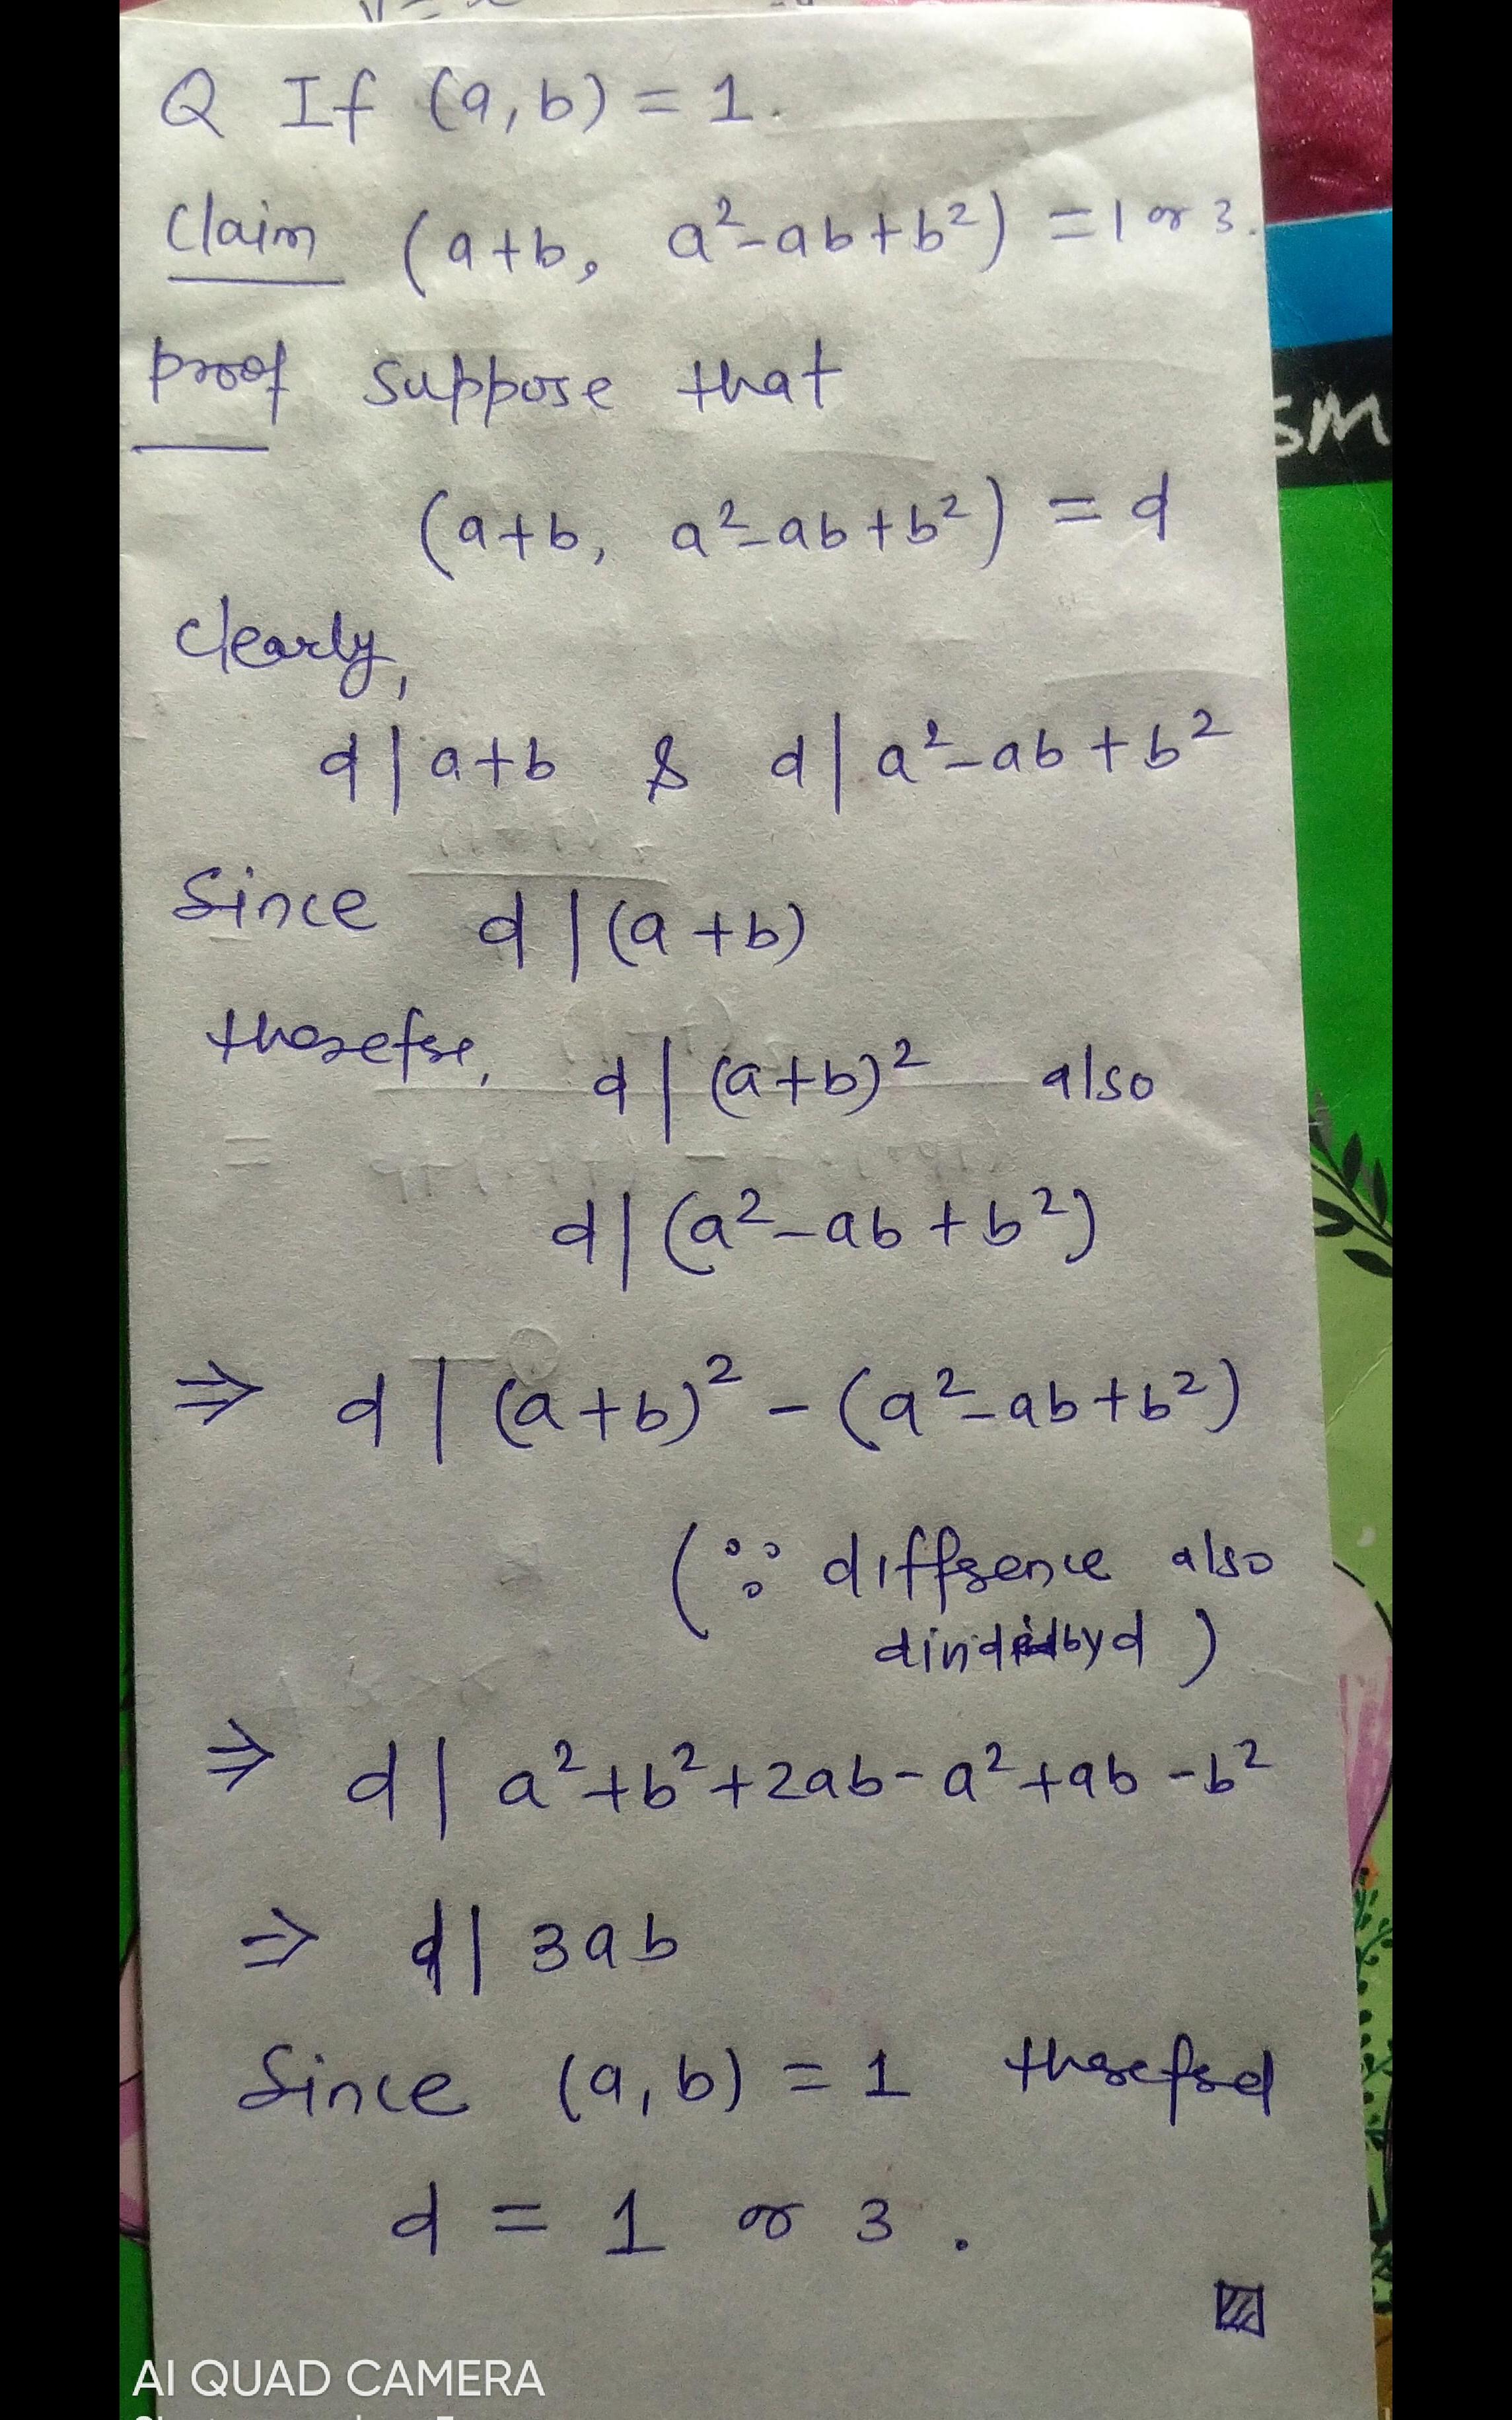 Q If (a,b) = 1.
Claim (a+b, a²-ab+b²) = 1 or 3.
Proof Suppose that
(a+b, a²-ab+b²) = d
Clearly,
d | a+b & d | a²-ab+b²
Since d | (a+b)
therefore, d | (a+b)² also
d | (a²-ab+b²)
⇒ d | (a+b)² - (a²-ab+b²)
(∵ difference also
by d)
⇒ d | a²+b²+2ab-a²+ab-b²
⇒ d | 3ab
Since (a,b) = 1 therefore
d = 1 or 3.
SM
AI QUAD CAMERA